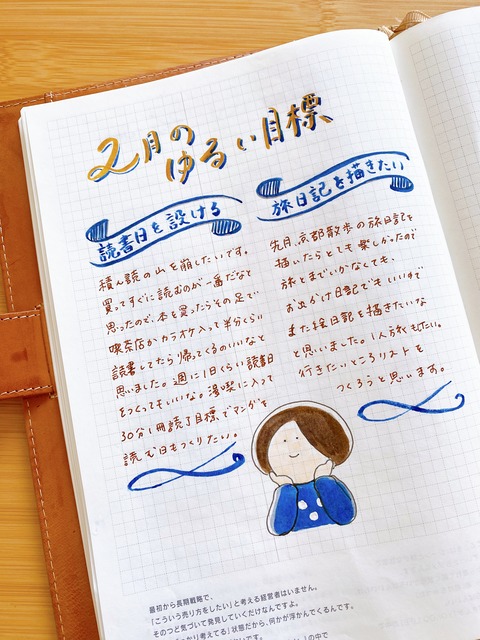 2月の
ゆるい目標
読書日を設ける
積ん読の山を崩したいです。
買ってすぐに読むのが一番だなと
思ったので、本を買ったらその足で
喫茶店かカラオケ入って半分くらい
読書してたら帰ってくるのいいなと
思いました。週に1日くらい読書日
をつくってもいいな。漫喫に入って
30分1冊読了目標でマンガを
読む日もつくりたい。
旅日記を描きたい
先月、京都散歩の旅日記を
描いたらとても楽しかったので
旅とまでいかなくても、
お出かけ日記でもいいので
また絵日記を描きたいな
と思いました。1人旅もしたい。
行きたいところリストを
つくろうと思います。
最初から長期戦略で、
「こういう売り方をしたい」と考える経営者はいません。
そのつど気づいて発見していくだけなんですよ。
かり考えてる」状態だから、何かが浮かんでくるんです。